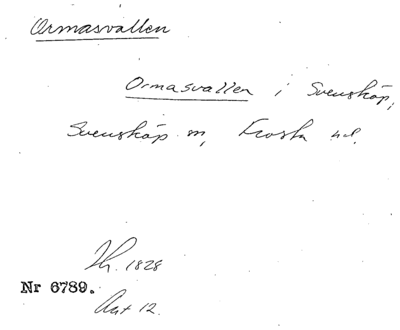 Ormasvallen
Ormasvallen i Svensköp,
Svensköp sn, Frosta hd.
Th. 1828
Nr 6789.
Akt 12.